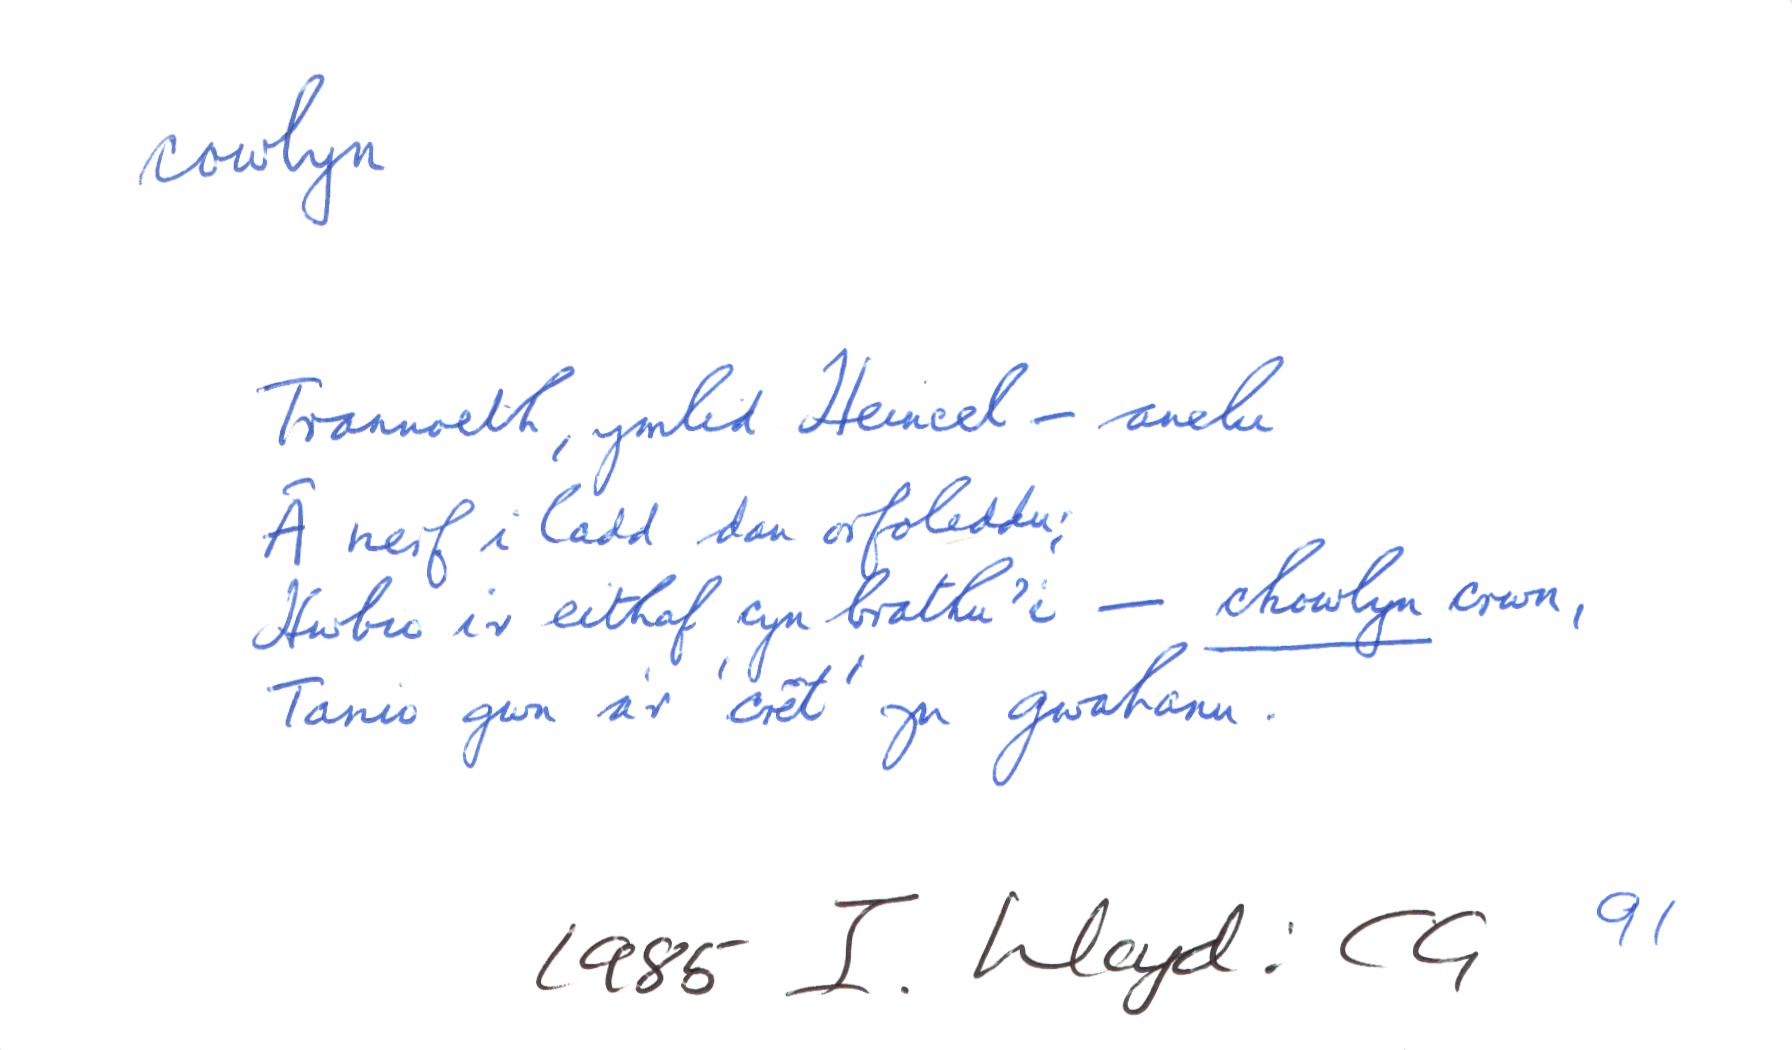 cowlyn
Trannoeth, ymlid Heincel – anelu
Â nerf i ladd dan orfoleddu;
Hwbio i'r eithaf cyn brathu'i – chowlyn crwn,
Tanio gwn a'r 'crêt' yn gwahanu.
1985 I. Llwyd: CG 91